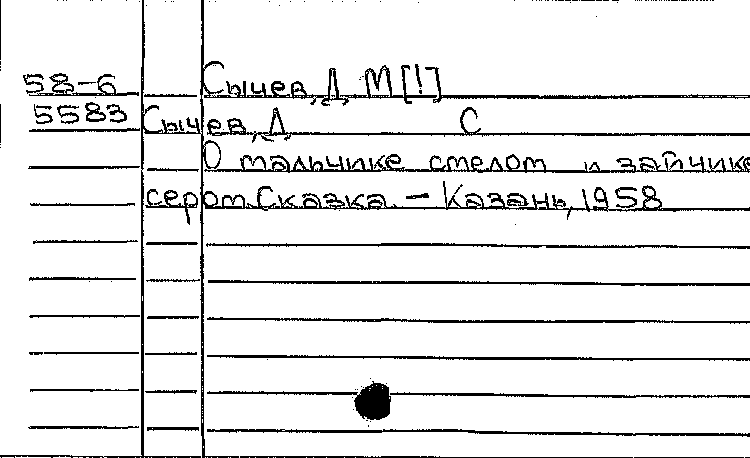 58-6 Сычев, Д. М [!]
5583 Сычев, Д. С
О мальчике смелом и зайчике
сером. Сказка. - Казань, 1958